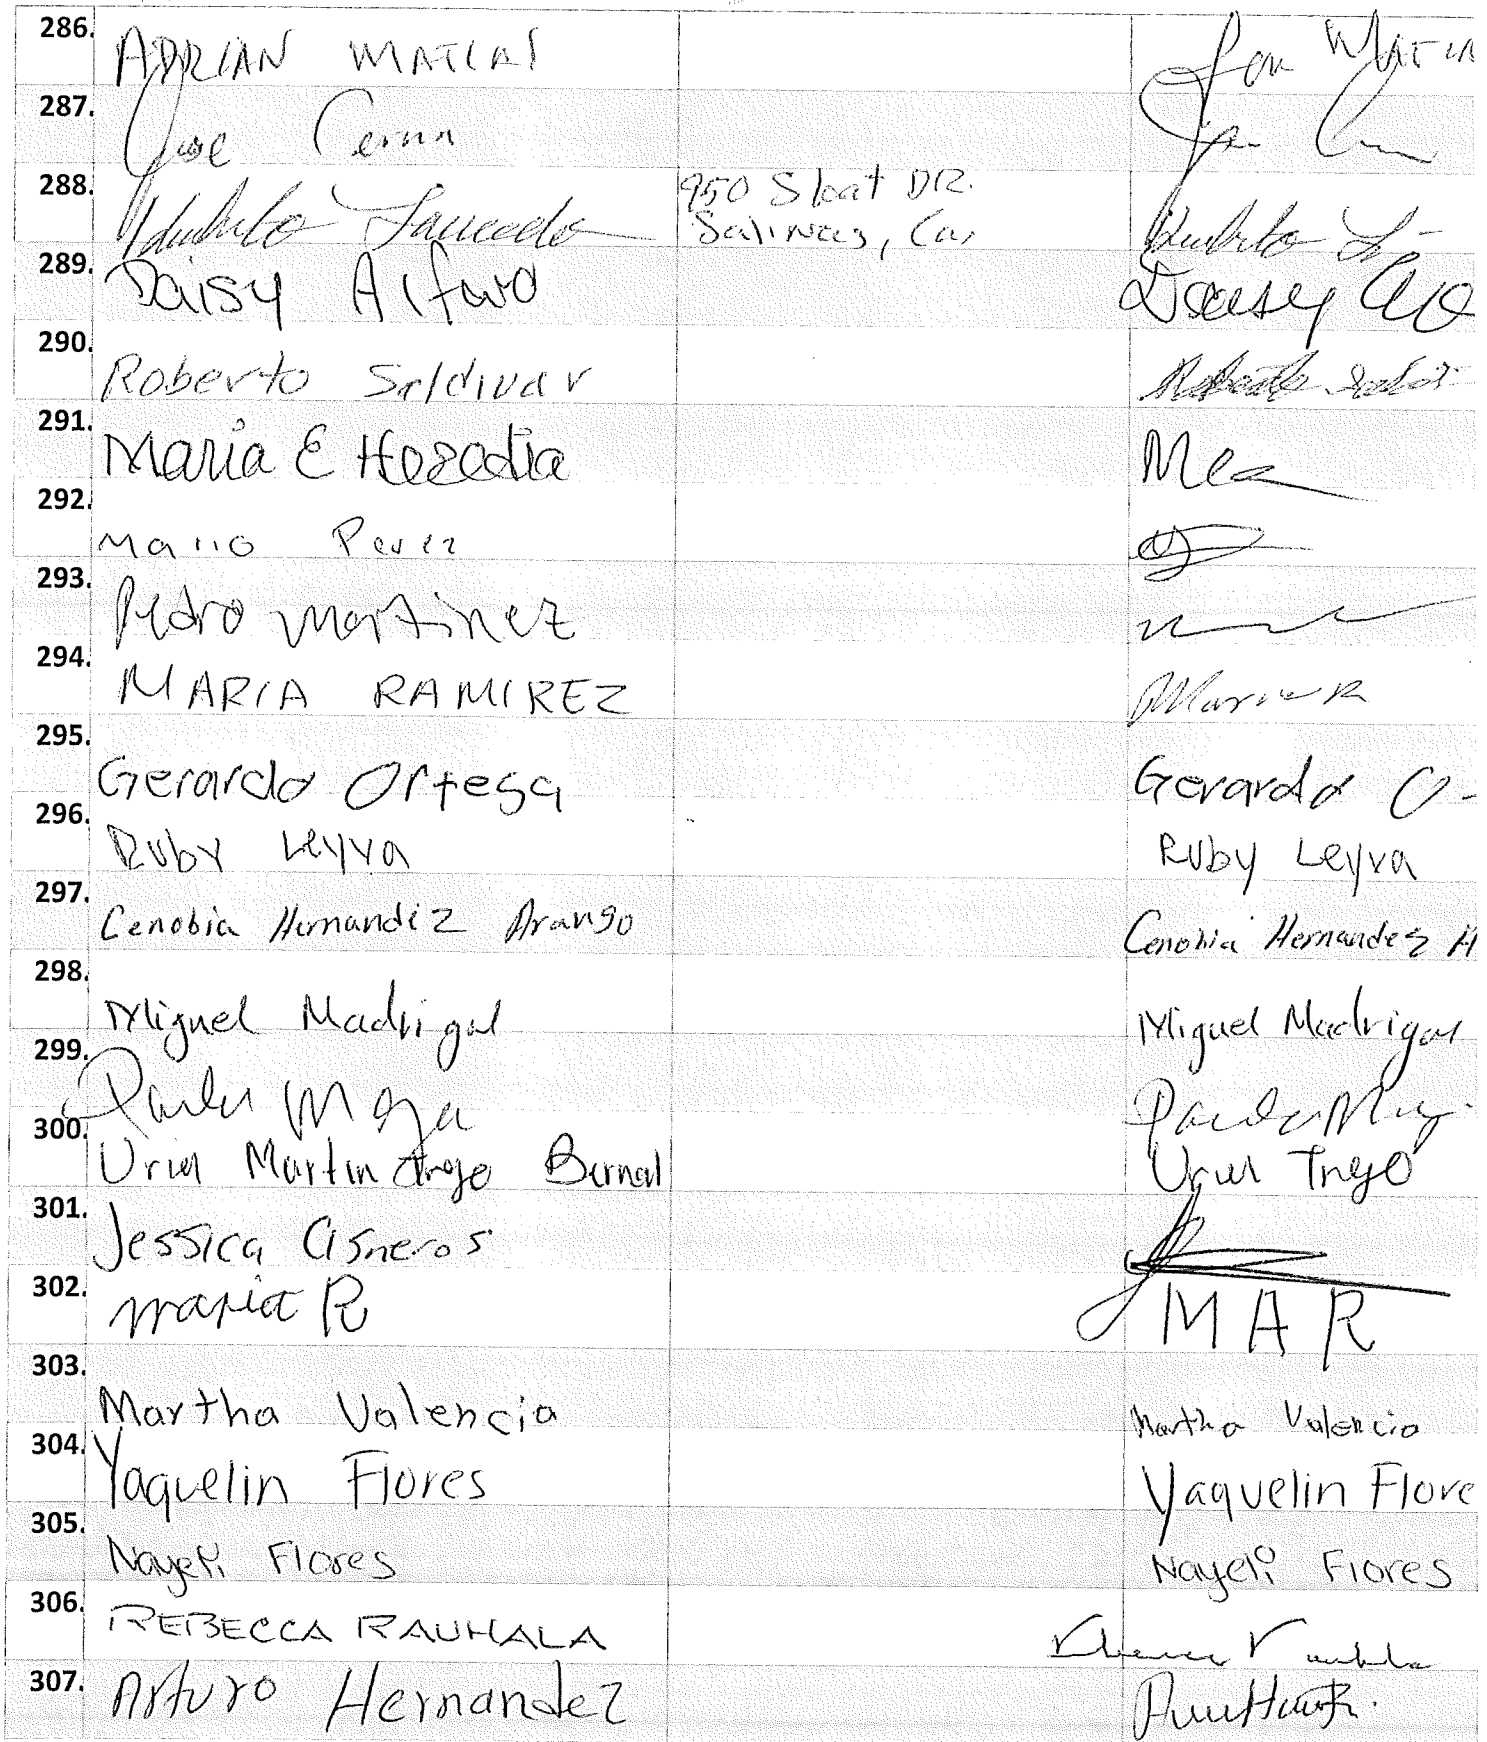 286. ADRIAN MATIAS
287. Jose Cerna
288. Humberto Saucedo 950 Sloat DR. Humberto
Salinas, Ca,
289. Daisy Daisy
290. Roberto Saldivar Roberto
291. Maria E Heredia
292. Mario Perez
293. Pedro Martinez
294. MARIA RAMIREZ Maria R
295. Gerardo Ortega Gerardo O
296. Ruby Leyva Ruby Leyva
297. Cenobia Hernandez Arango Cenobia Hernandez A
298. Miguel Madrigal Miguel Madrigal
299. Paula Moya Paula
300. Uriel Martin Trejo Bernal Uriel Trejo
301. Jessica Cisneros
302. maria R M A R
303. Martha Valencia Martha Valencia
304. Yaquelin Flores Yaquelin Flore
305. Nayeli Flores Nayeli Flores
306. REBECCA RAUHALA
307. Arturo Hernandez